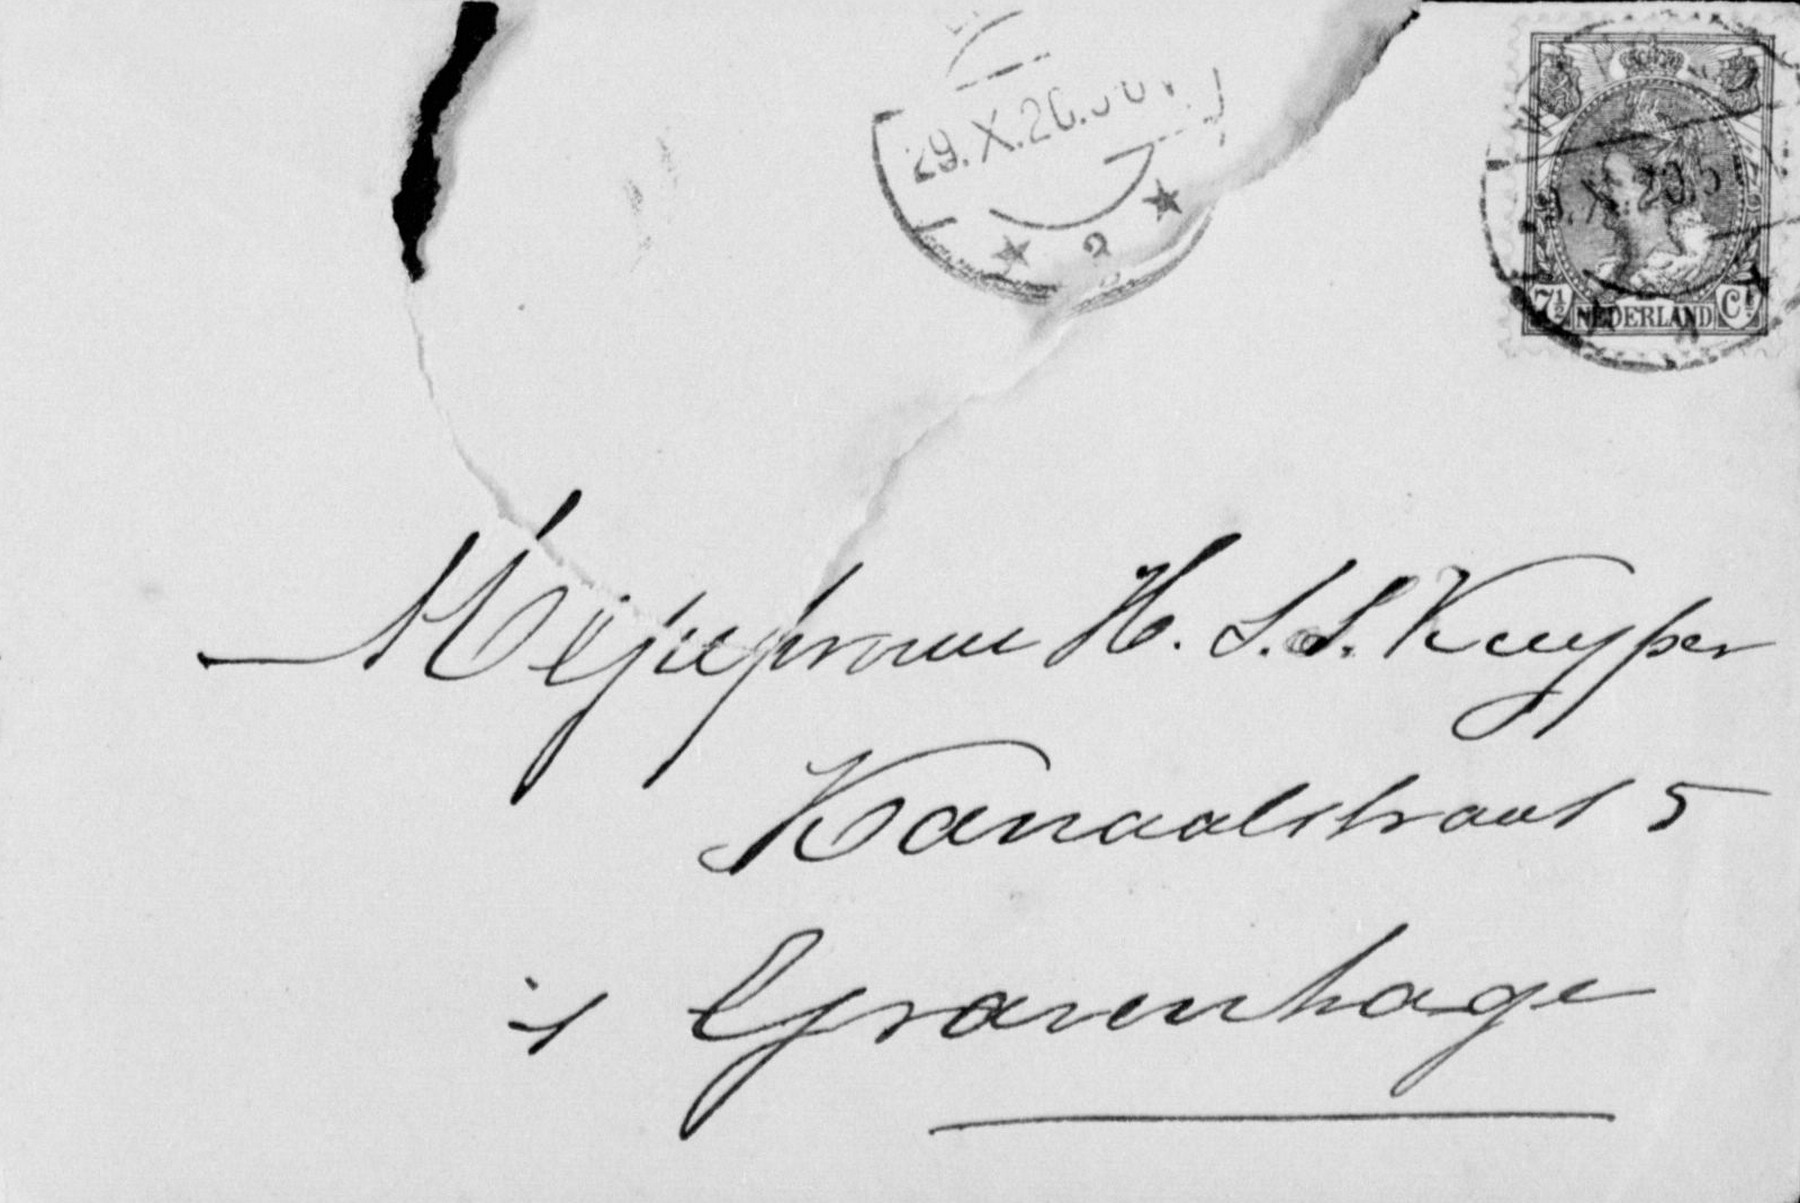 29.X.20.
7½ NEDERLAND Ct
Mejufvrouw H. S. S. Kuyper
Kanaalstraat 5
's Gravenhage